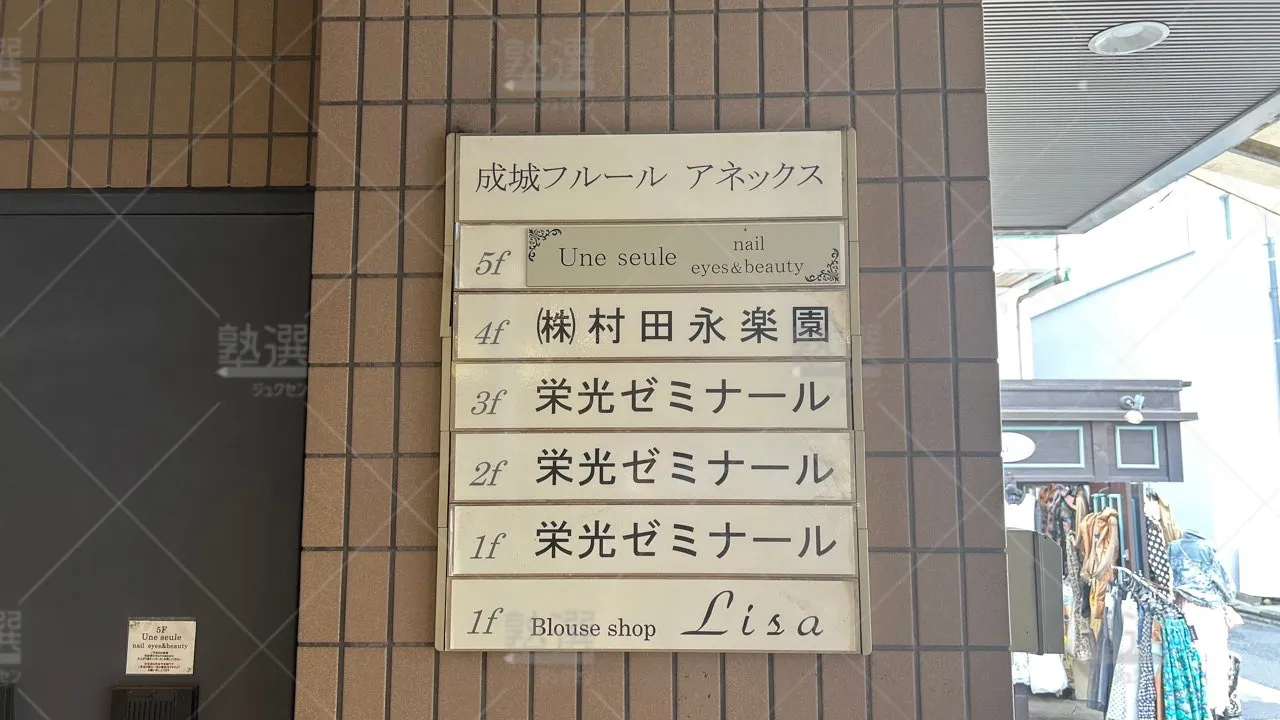 成城フルール アネックス
5f Une seule nail eyes&beauty
4f ㈱村田永楽園
3f 栄光ゼミナール
2f 栄光ゼミナール
1f 栄光ゼミナール
1f Blouse shop Lisa
5F
Une seule
nail eyes&beauty
塾選
ジュクセン